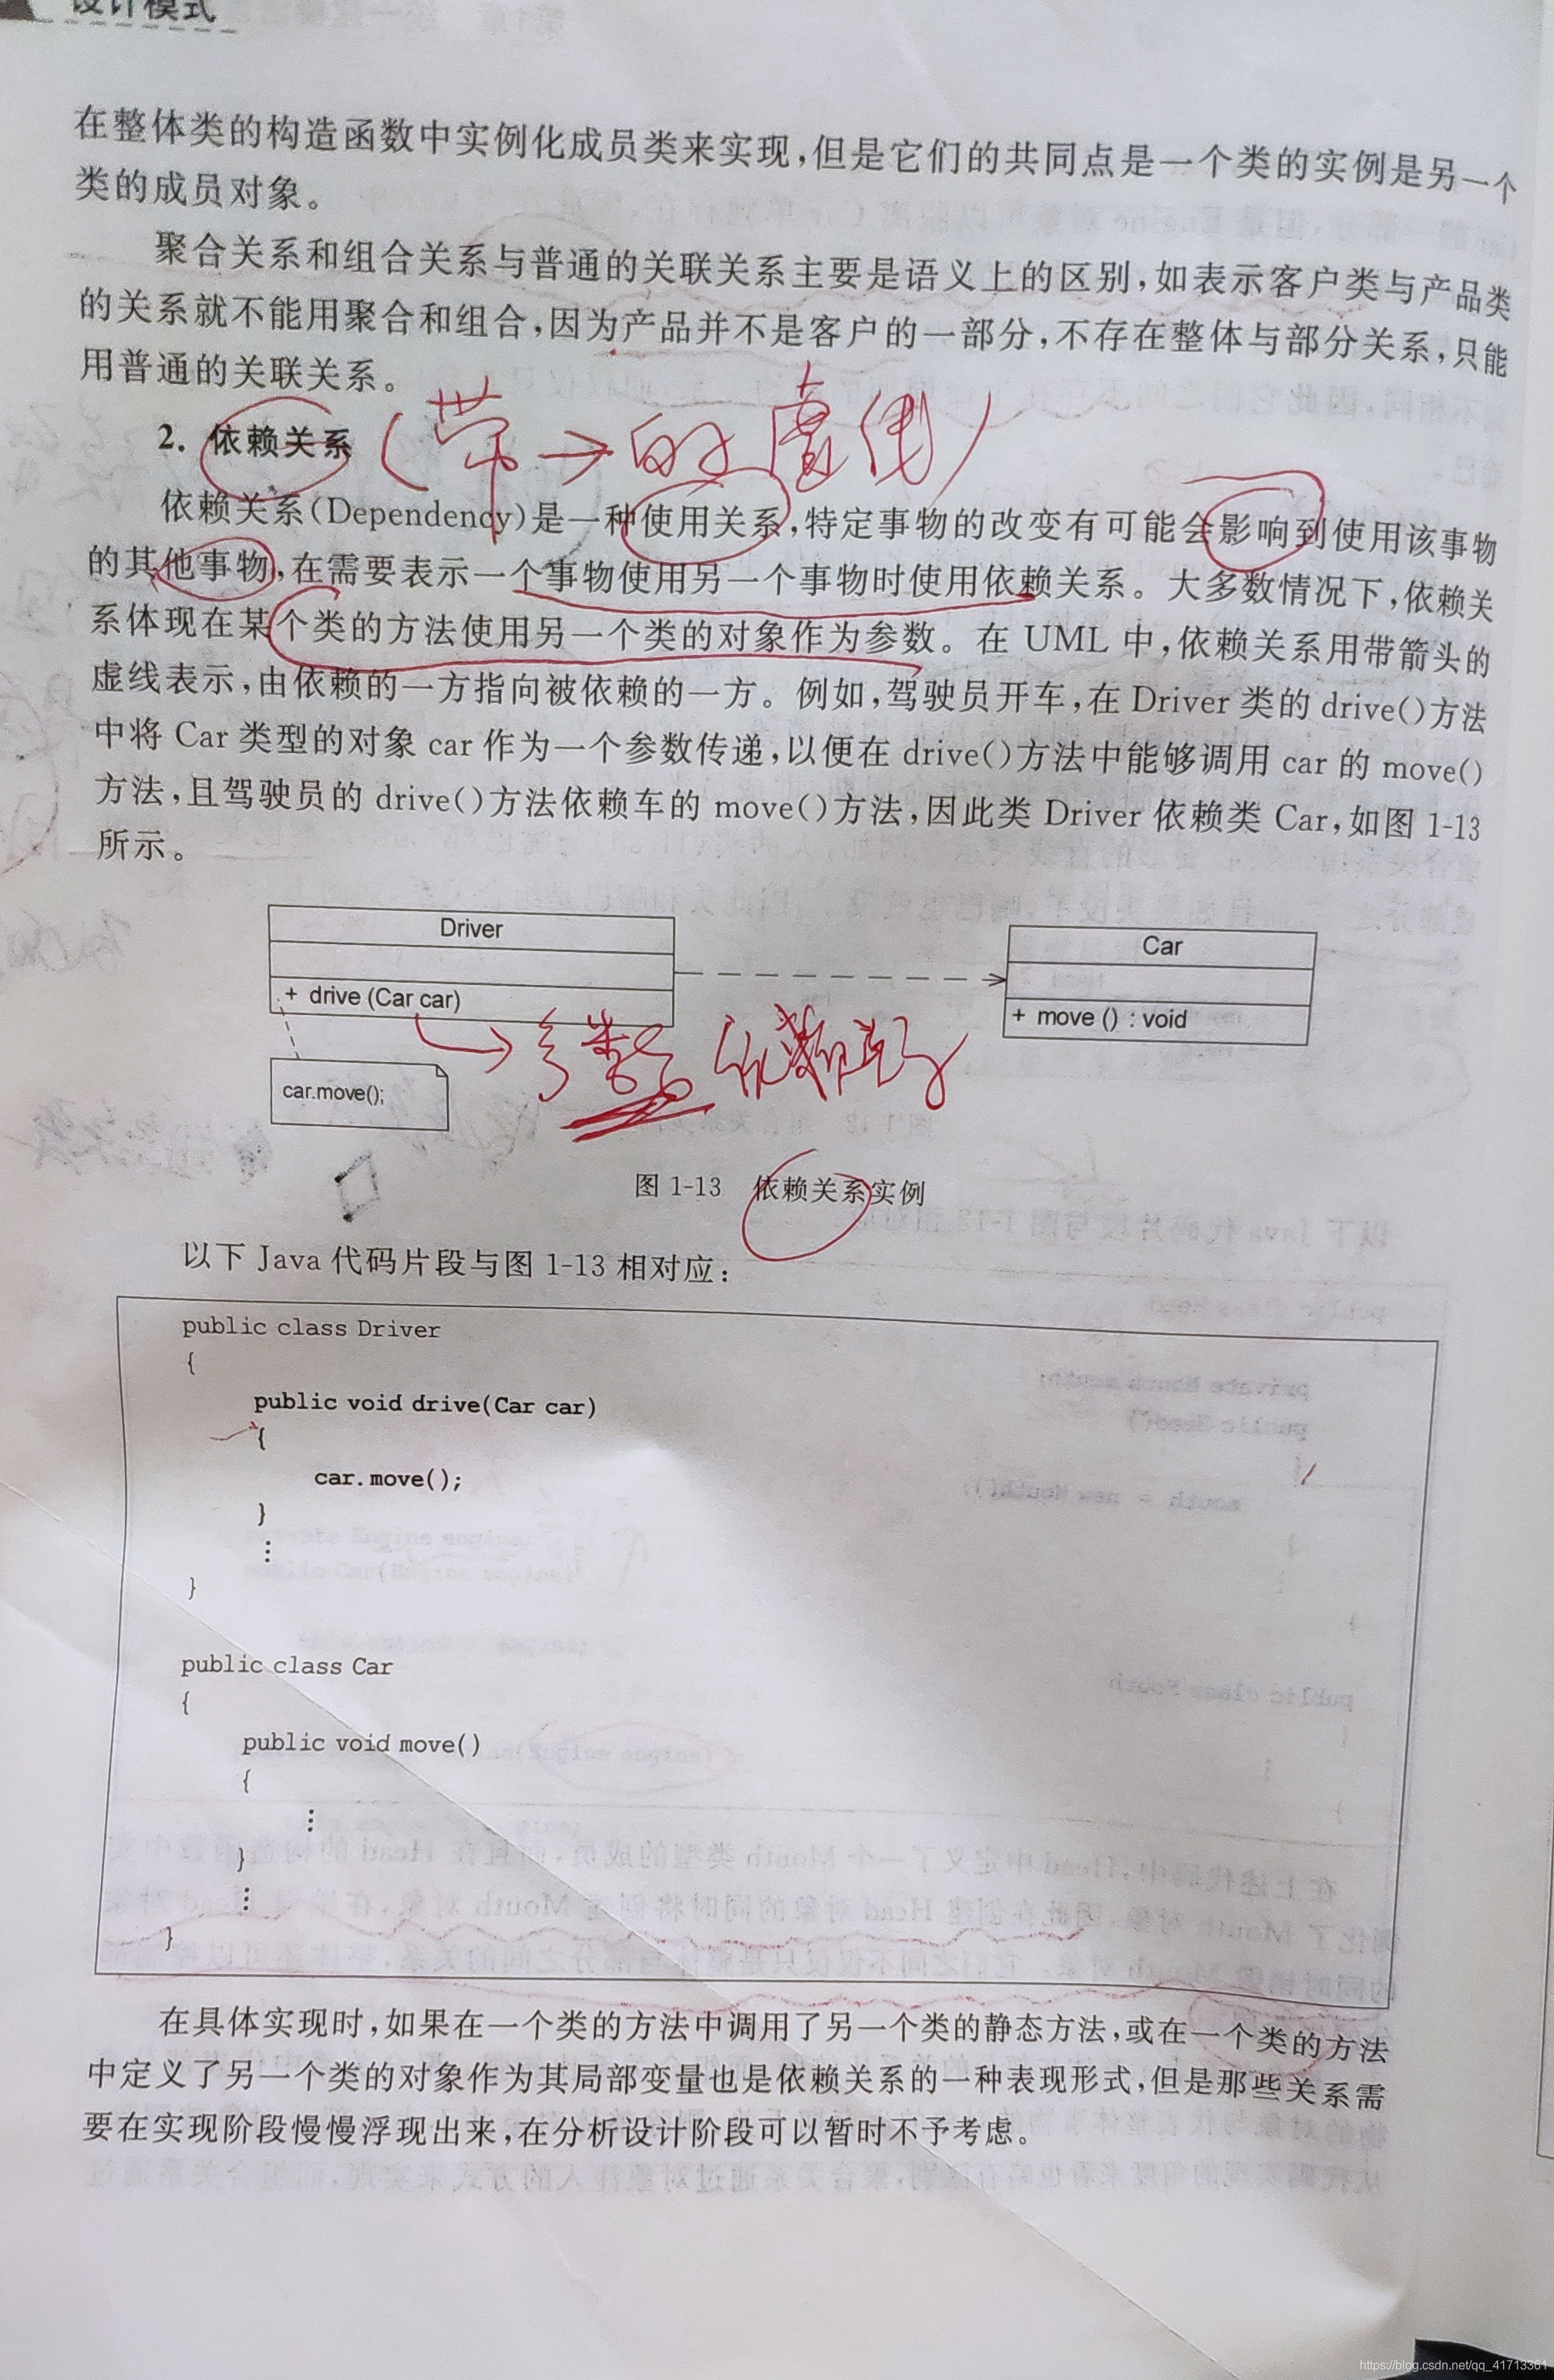 设计模式
在整体类的构造函数中实例化成员类来实现,但是它们的共同点是一个类的实例是另一个
类的成员对象。
聚合关系和组合关系与普通的关联关系主要是语义上的区别,如表示客户类与产品类
的关系就不能用聚合和组合,因为产品并不是客户的一部分,不存在整体与部分关系,只能
用普通的关联关系。
2. 依赖关系 (带→的虚线)
依赖关系(Dependency)是一种使用关系,特定事物的改变有可能会影响到使用该事物
的其他事物,在需要表示一个事物使用另一个事物时使用依赖关系。大多数情况下,依赖关
系体现在某个类的方法使用另一个类的对象作为参数。在 UML 中,依赖关系用带箭头的
虚线表示,由依赖的一方指向被依赖的一方。例如,驾驶员开车,在 Driver 类的 drive()方法
中将 Car 类型的对象 car 作为一个参数传递,以便在 drive()方法中能够调用 car 的 move()
方法,且驾驶员的 drive()方法依赖车的 move()方法,因此类 Driver 依赖类 Car,如图 1-13
所示。
Driver
Car
+ drive (Car car)
+ move () : void
→参数 依赖关系
car.move();
图 1-13 依赖关系实例
以下 Java 代码片段与图 1-13 相对应:
public class Driver
{
public void drive(Car car)
{
car.move();
}
⋮
}
public class Car
{
public void move()
{
⋮
}
⋮
}
在具体实现时,如果在一个类的方法中调用了另一个类的静态方法,或在一个类的方法
中定义了另一个类的对象作为其局部变量也是依赖关系的一种表现形式,但是那些关系需
要在实现阶段慢慢浮现出来,在分析设计阶段可以暂时不予考虑。
https://blog.csdn.net/qq_41713361